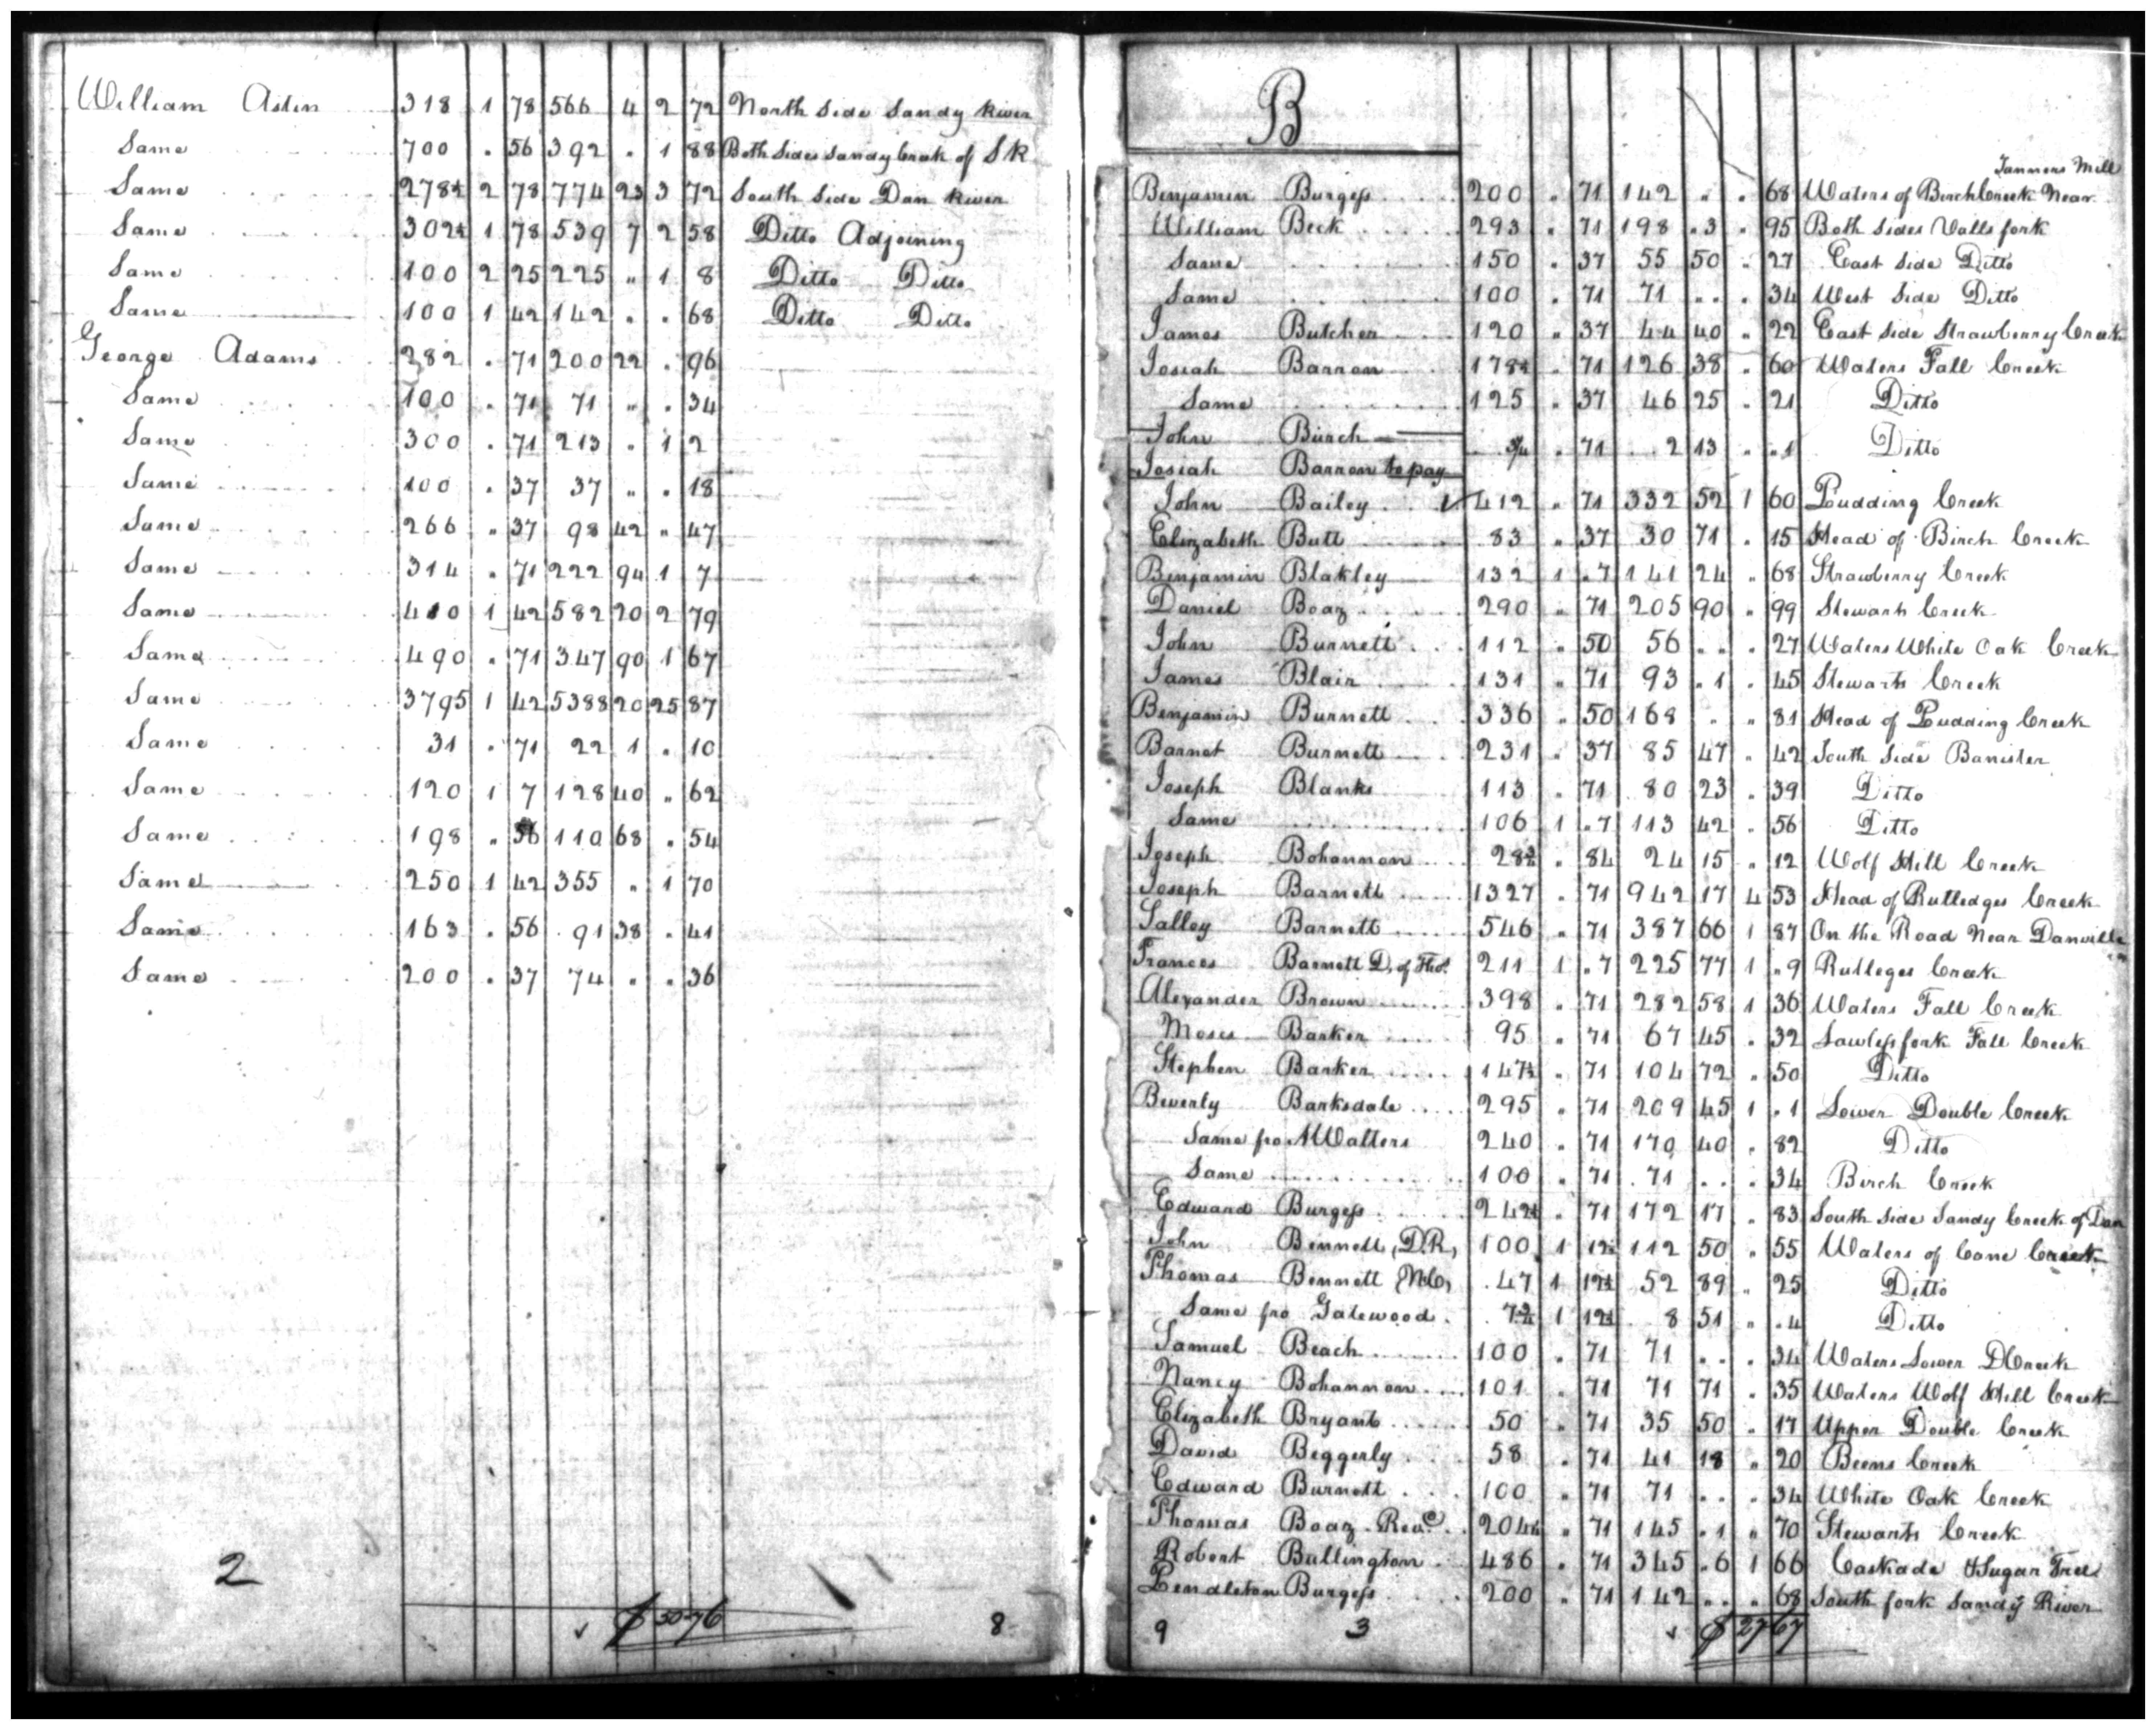 William Astin 318 1 78 566 4 2 72 North Side Sandy River
Same 700 . 56 392 . 1 88 Both Sides Sandy Creek of S R
Same 278½ 2 78 774 23 3 72 South Side Dan River
Same 302½ 1 78 539 7 2 58 Ditto Adjoining
Same 100 2 25 225 " 1 8 Ditto Ditto
Same 100 1 42 142 . . 68 Ditto Ditto
George Adams 282 . 71 200 22 . 96
Same 100 . 71 71 " . 34
Same 300 . 71 213 . 1 2
Same 100 . 37 37 " . 18
Same 266 " 37 98 42 " 47
Same 314 . 71 222 94 1 7
Same 410 1 42 582 20 2 79
Same 490 . 71 347 90 1 67
Same 3795 1 42 5388 20 25 87
Same 31 . 71 22 1 . 10
Same 120 1 7 128 40 " 62
Same 198 " 56 110 68 . 54
Same 250 1 42 355 " 1 70
Same 163 . 56 91 38 . 41
Same 200 . 37 74 " . 36
2
$ 30 76
8
B
Tanners Mill
Benjamin Burgess 200 " 71 142 " . 68 Waters of Birch Creek Near
William Beck 293 . 71 198 .3 . 95 Both Sides Valls fork
Same 150 . 37 55 50 " 27 East Side Ditto
Same 100 . 71 71 .. . 34 West Side Ditto
James Butcher 120 " 37 44 40 " 22 East Side Strawberry Creek
Josiah Barron 178½ . 71 126 38 " 60 Waters Fall Creek
Same 125 . 37 46 25 . 21 Ditto
John Burch 3/4 . 71 2 13 . .1 Ditto
Josiah Barron to pay
John Bailey 412 " 71 332 52 1 60 Pudding Creek
Elizabeth Butt 83 " 37 30 71 . 15 Head of Birch Creek
Benjamin Blakley 132 1 .7 141 24 " 68 Strawberry Creek
Daniel Boaz 290 " 71 205 90 " 99 Stewarts Creek
John Burnett 112 " 50 56 .. . 27 Waters White Oak Creek
James Blair 131 " 71 93 .1 . 45 Stewarts Creek
Benjamin Burnett 336 " 50 168 . " 81 Head of Pudding Creek
Barnet Burnett 231 " 37 85 47 " 42 South Side Banister
Joseph Blanks 113 . 71 80 23 . 39 Ditto
Same 106 1 .7 113 42 . 56 Ditto
Joseph Bohannon 28¾ . 84 24 15 " 12 Wolf Hill Creek
Joseph Barnett 1327 . 71 942 17 4 53 Head of Rutledges Creek
Salley Barnett 546 " 71 387 66 1 87 On the Road Near Danville
Frances Barnett D. of Tho.s 211 1 .7 225 77 1 .9 Rulleges Creek
Alexander Brown 398 " 71 282 58 1 36 Waters Fall Creek
Moses Barker 95 " 71 67 45 . 32 Lawless fork Fall Creek
Stephen Barker 147½ . 71 104 72 " 50 Ditto
Beverly Barksdale 295 " 71 209 45 1 .1 Lower Double Creek
Same fro Walters 240 . 71 170 40 . 82 Ditto
Same 100 . 71 71 . . 34 Birch Creek
Edward Burgess 242½ . 71 172 17 . 83 South Side Sandy Creek of Dan
John Bennett (D.R) 100 1 12½ 112 50 " 55 Waters of Cane Creek
Thomas Bennett (N.C) 47 1 12½ 52 89 " 25 Ditto
Same fro Gatewood 7¾ 1 12½ 8 51 " .4 Ditto
Samuel Beach 100 . 71 71 . . 34 Waters Lower D Creek
Nancy Bohannon 101 . 71 71 71 . 35 Waters Wolf Hill Creek
Elizabeth Bryant 50 " 71 35 50 . 17 Upper Double Creek
David Beggerly 58 . 71 41 18 " 20 Beens Creek
Edward Burnett 100 " 71 71 . . 34 White Oak Creek
Thomas Boaz Revd 204¼ " 71 145 .1 " 70 Stewarts Creek
Robert Bullington 486 . 71 345 .6 1 66 Caskade & Sugar Tree
Pendleton Burgess 200 " 71 142 . " 68 South fork Sandy River
9 3 $ 27 67